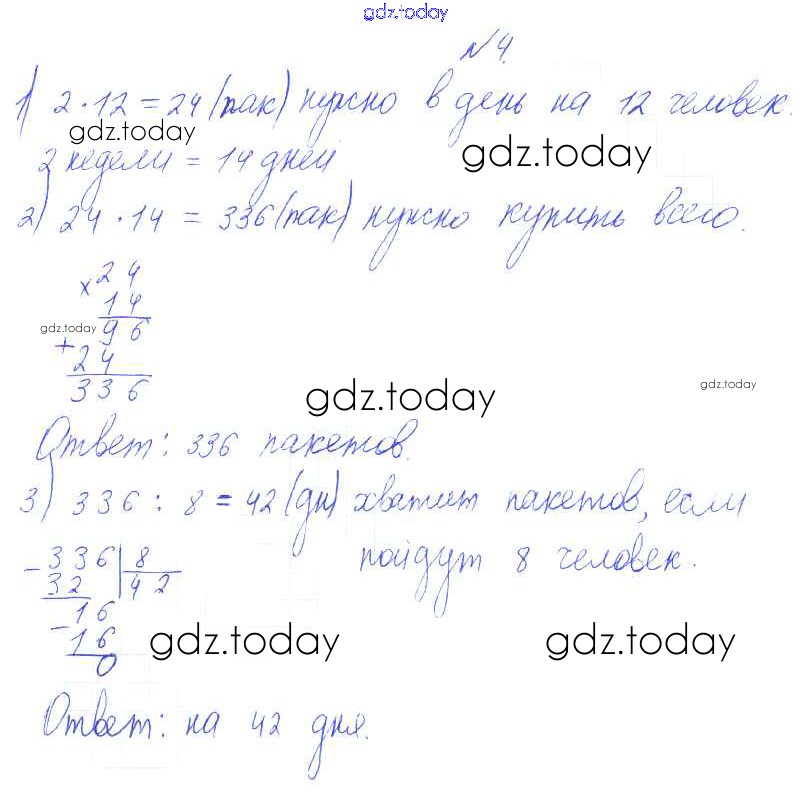 gdz.today
№4.
1) 2·12 = 24 (пак) нужно в день на 12 человек.
gdz.today
gdz.today
2 недели = 14 дней
2) 24·14 = 336 (пак) нужно купить всего.
× 24
14
gdz.today
96
+ 24
336
gdz.today
gdz.today
Ответ: 336 пакетов.
3) 336 : 8 = 42 (дн) хватит пакетов, если
пойдут 8 человек.
- 336 | 8
32 | 42
- 16
16
0
gdz.today
gdz.today
Ответ: на 42 дня.